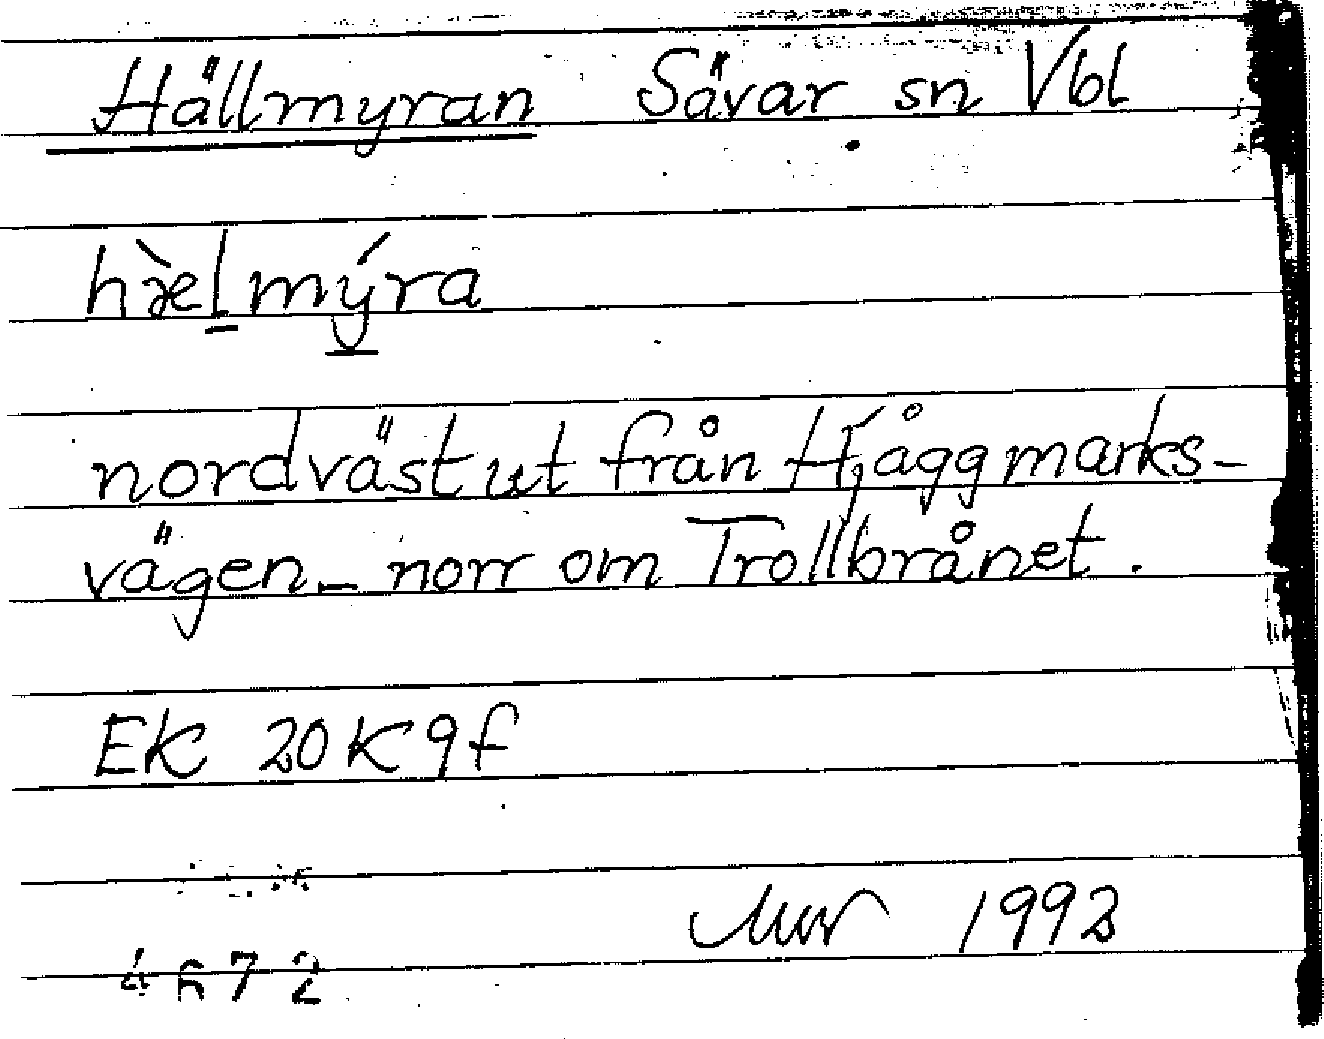 Hällmyran Sävar sn Vbl
hæ̀lmýra
nordväst ut från Hjåggmarks-
vägen - norr om Trollbrånet.
EK 20K9f
1992
4672